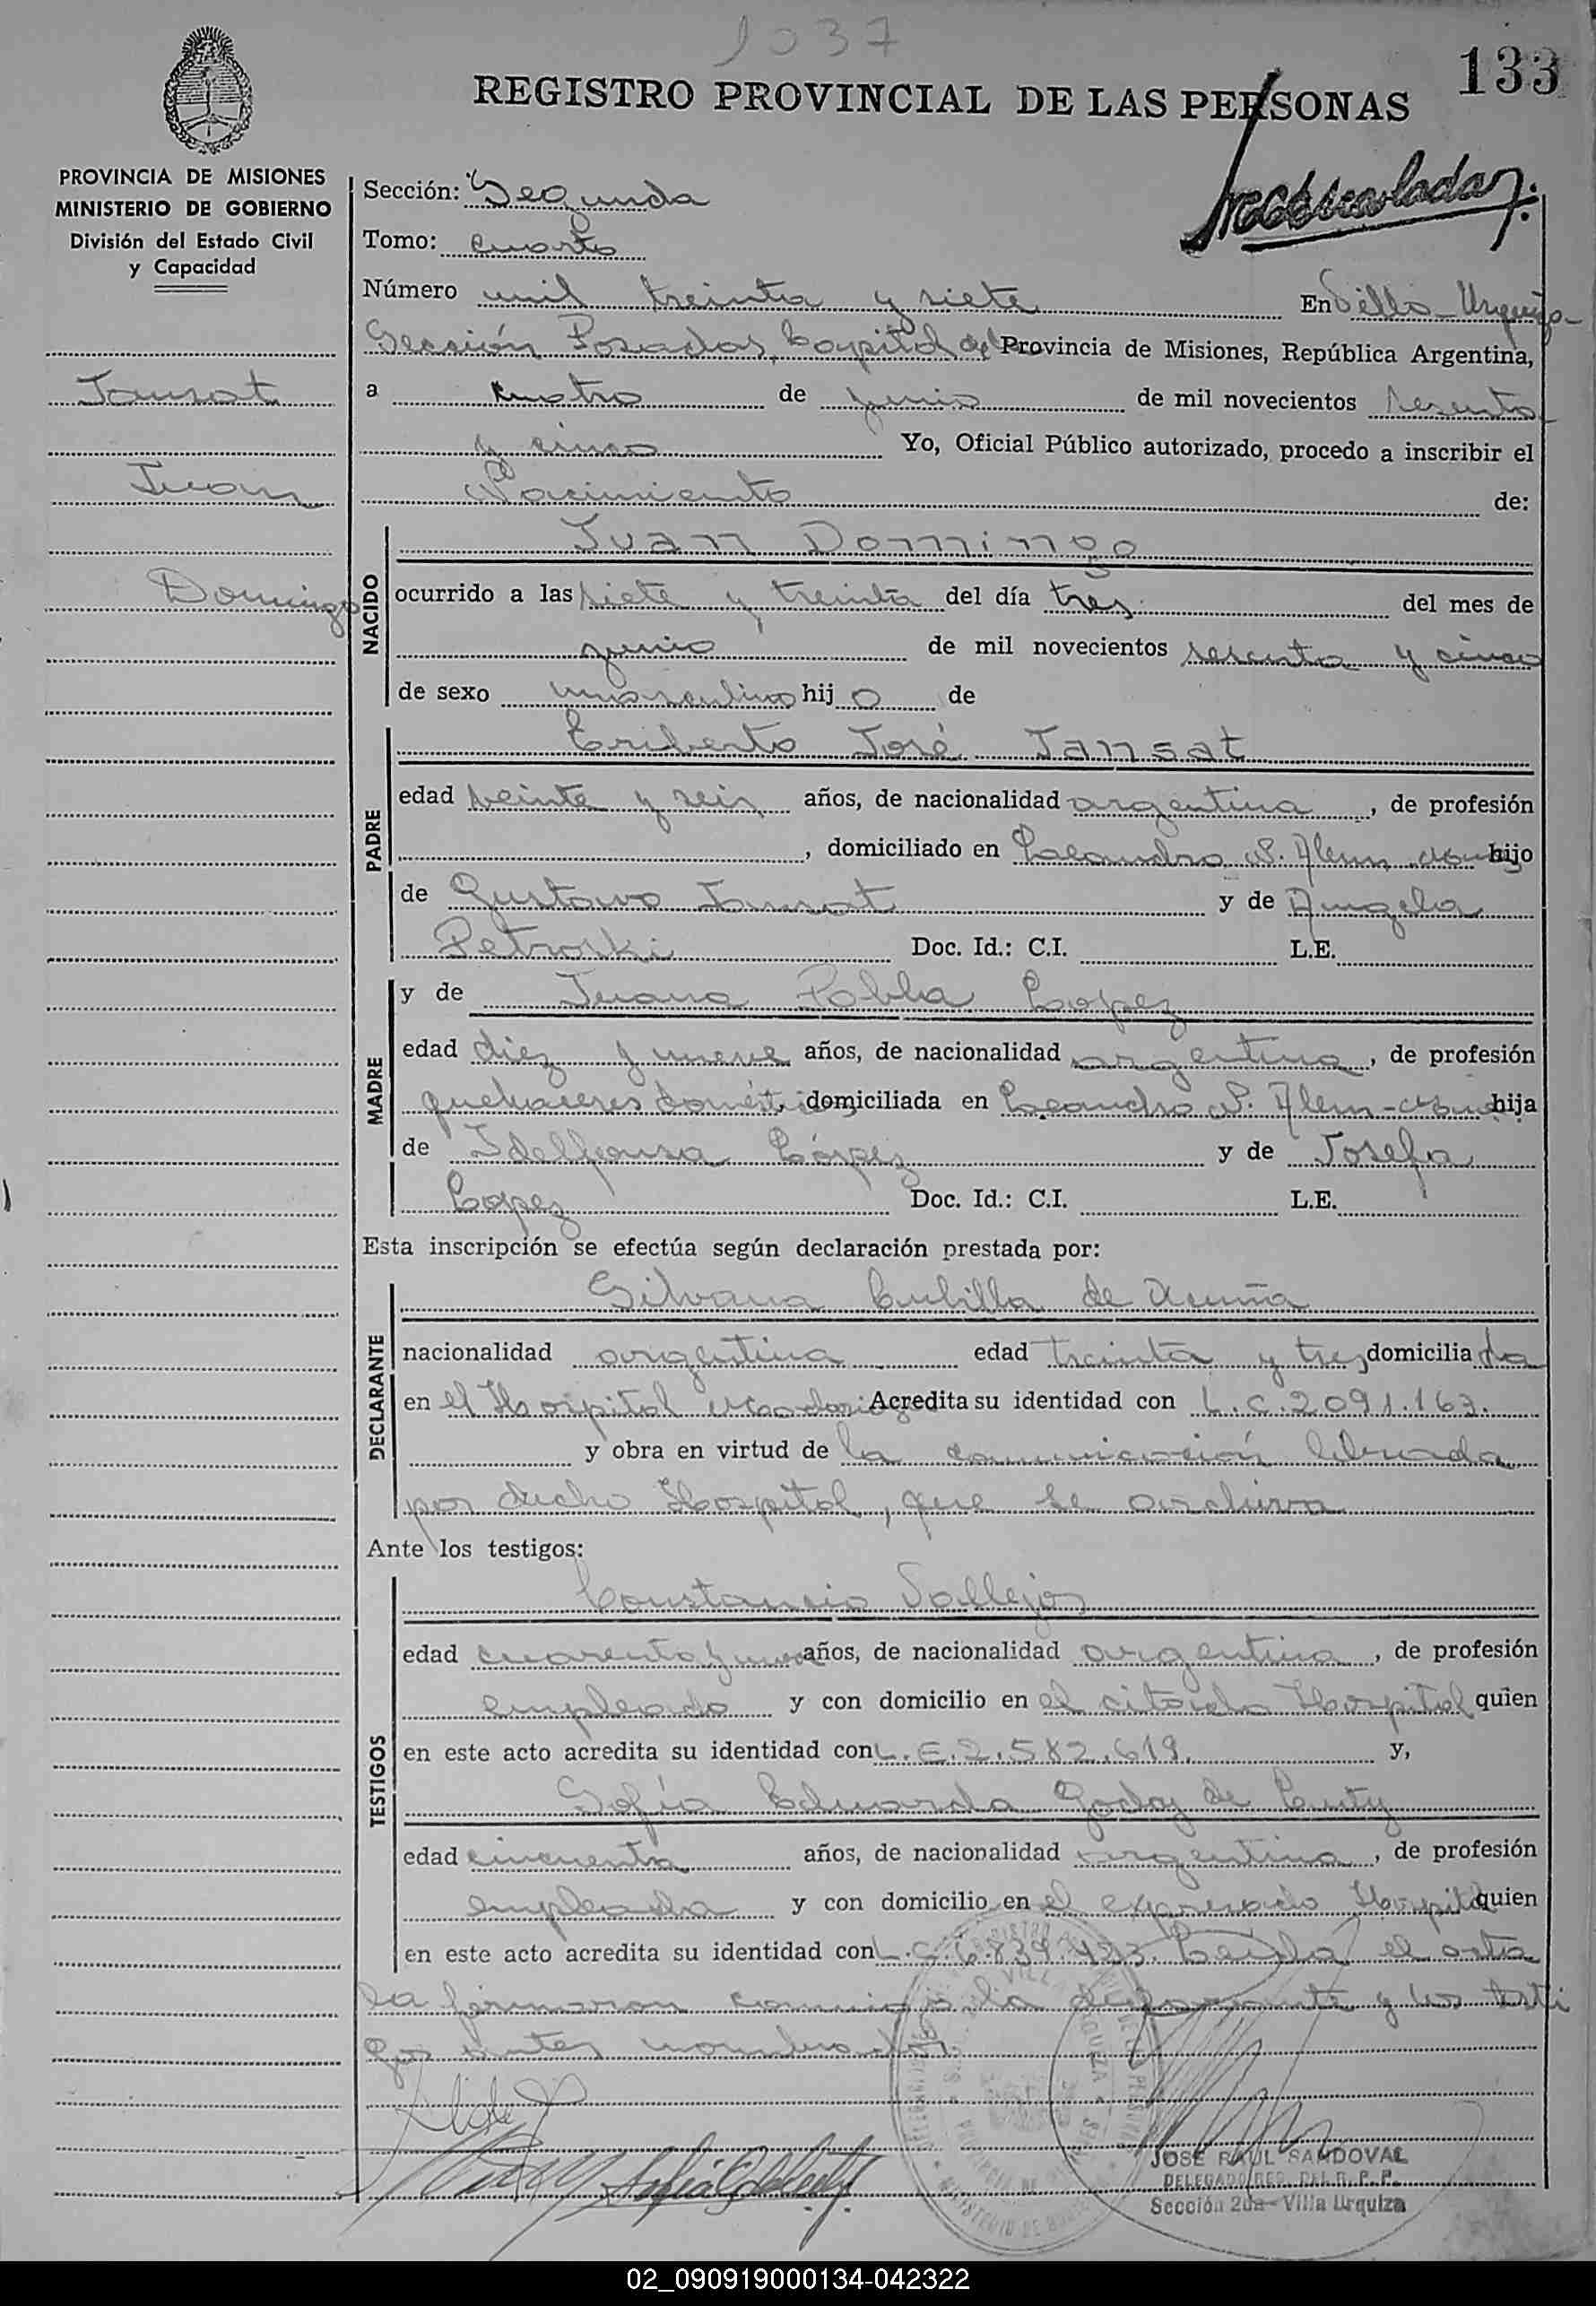 1037
133
REGISTRO PROVINCIAL DE LAS PERSONAS
PROVINCIA DE MISIONES
MINISTERIO DE GOBIERNO
División del Estado Civil
y Capacidad
Sección: Segunda
Tomo: cuarto
Número mil treinta y siete En Villa Urquiza
Sección Posadas, Capital de Provincia de Misiones, República Argentina,
Jansat
a cuatro de junio de mil novecientos sesenta
y cinco Yo, Oficial Público autorizado, procedo a inscribir el
Juan
Nacimiento de:
Domingo
NACIDO
Juan Domingo
ocurrido a las siete y treinta del día tres del mes de
junio de mil novecientos sesenta y cinco
de sexo masculino hijo de
PADRE
Eriberto José Jansat
edad veinte y seis años, de nacionalidad argentina, de profesión
, domiciliado en Leandro N. Alem hijo
de Gustavo Jansat y de Angela
Petroski Doc. Id.: C.I. L.E.
MADRE
y de Juana Pabla Lopez
edad diez y nueve años, de nacionalidad argentina, de profesión
quehaceres domésticos, domiciliada en Leandro N. Alem hija
de Idelfonsa López y de Josefa
Lopez Doc. Id.: C.I. L.E.
Esta inscripción se efectúa según declaración prestada por:
DECLARANTE
Silvana Cubilla de Acuña
nacionalidad argentina edad treinta y tres domiciliada
en el Hospital Madariaga Acredita su identidad con L.C.2.091.163.
y obra en virtud de la comunicación librada
por dicho Hospital, que se archiva
Ante los testigos:
TESTIGOS
Constancio Vallejos
edad cuarenta y años, de nacionalidad argentina, de profesión
empleado y con domicilio en el citado Hospital quien
en este acto acredita su identidad con L.E.2.582.619. y,
Sofía Eduarda Godoy de
edad cincuenta años, de nacionalidad argentina, de profesión
empleada y con domicilio en el expresado Hospital quien
en este acto acredita su identidad con L.C.6.839.423. Leída el acta
la firmaron conmigo la declarante y los testi
gos antes nombrados.
JOSE RAUL SANDOVAL
DELEGADO REG. DEL R. P. P.
Sección 2da - Villa Urquiza
02_090919000134-042322